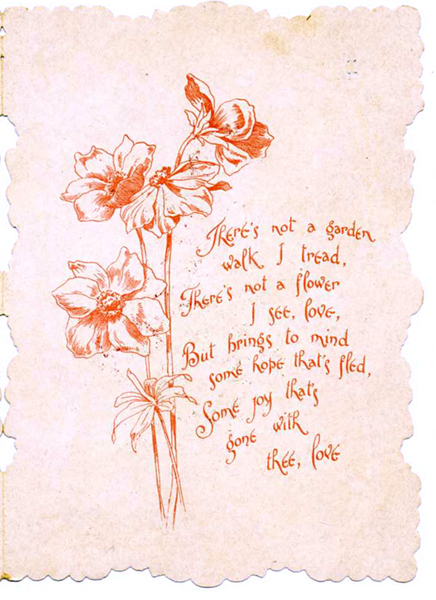 There's not a garden
walk I tread,
There's not a flower
I see, love,
But brings to mind
some hope that's fled,
Some joy that's
gone with
thee, love